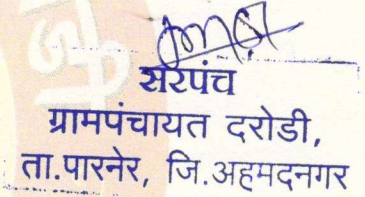 सरपंच
ग्रामपंचायत दरोडी,
ता.पारनेर, जि.अहमदनगर